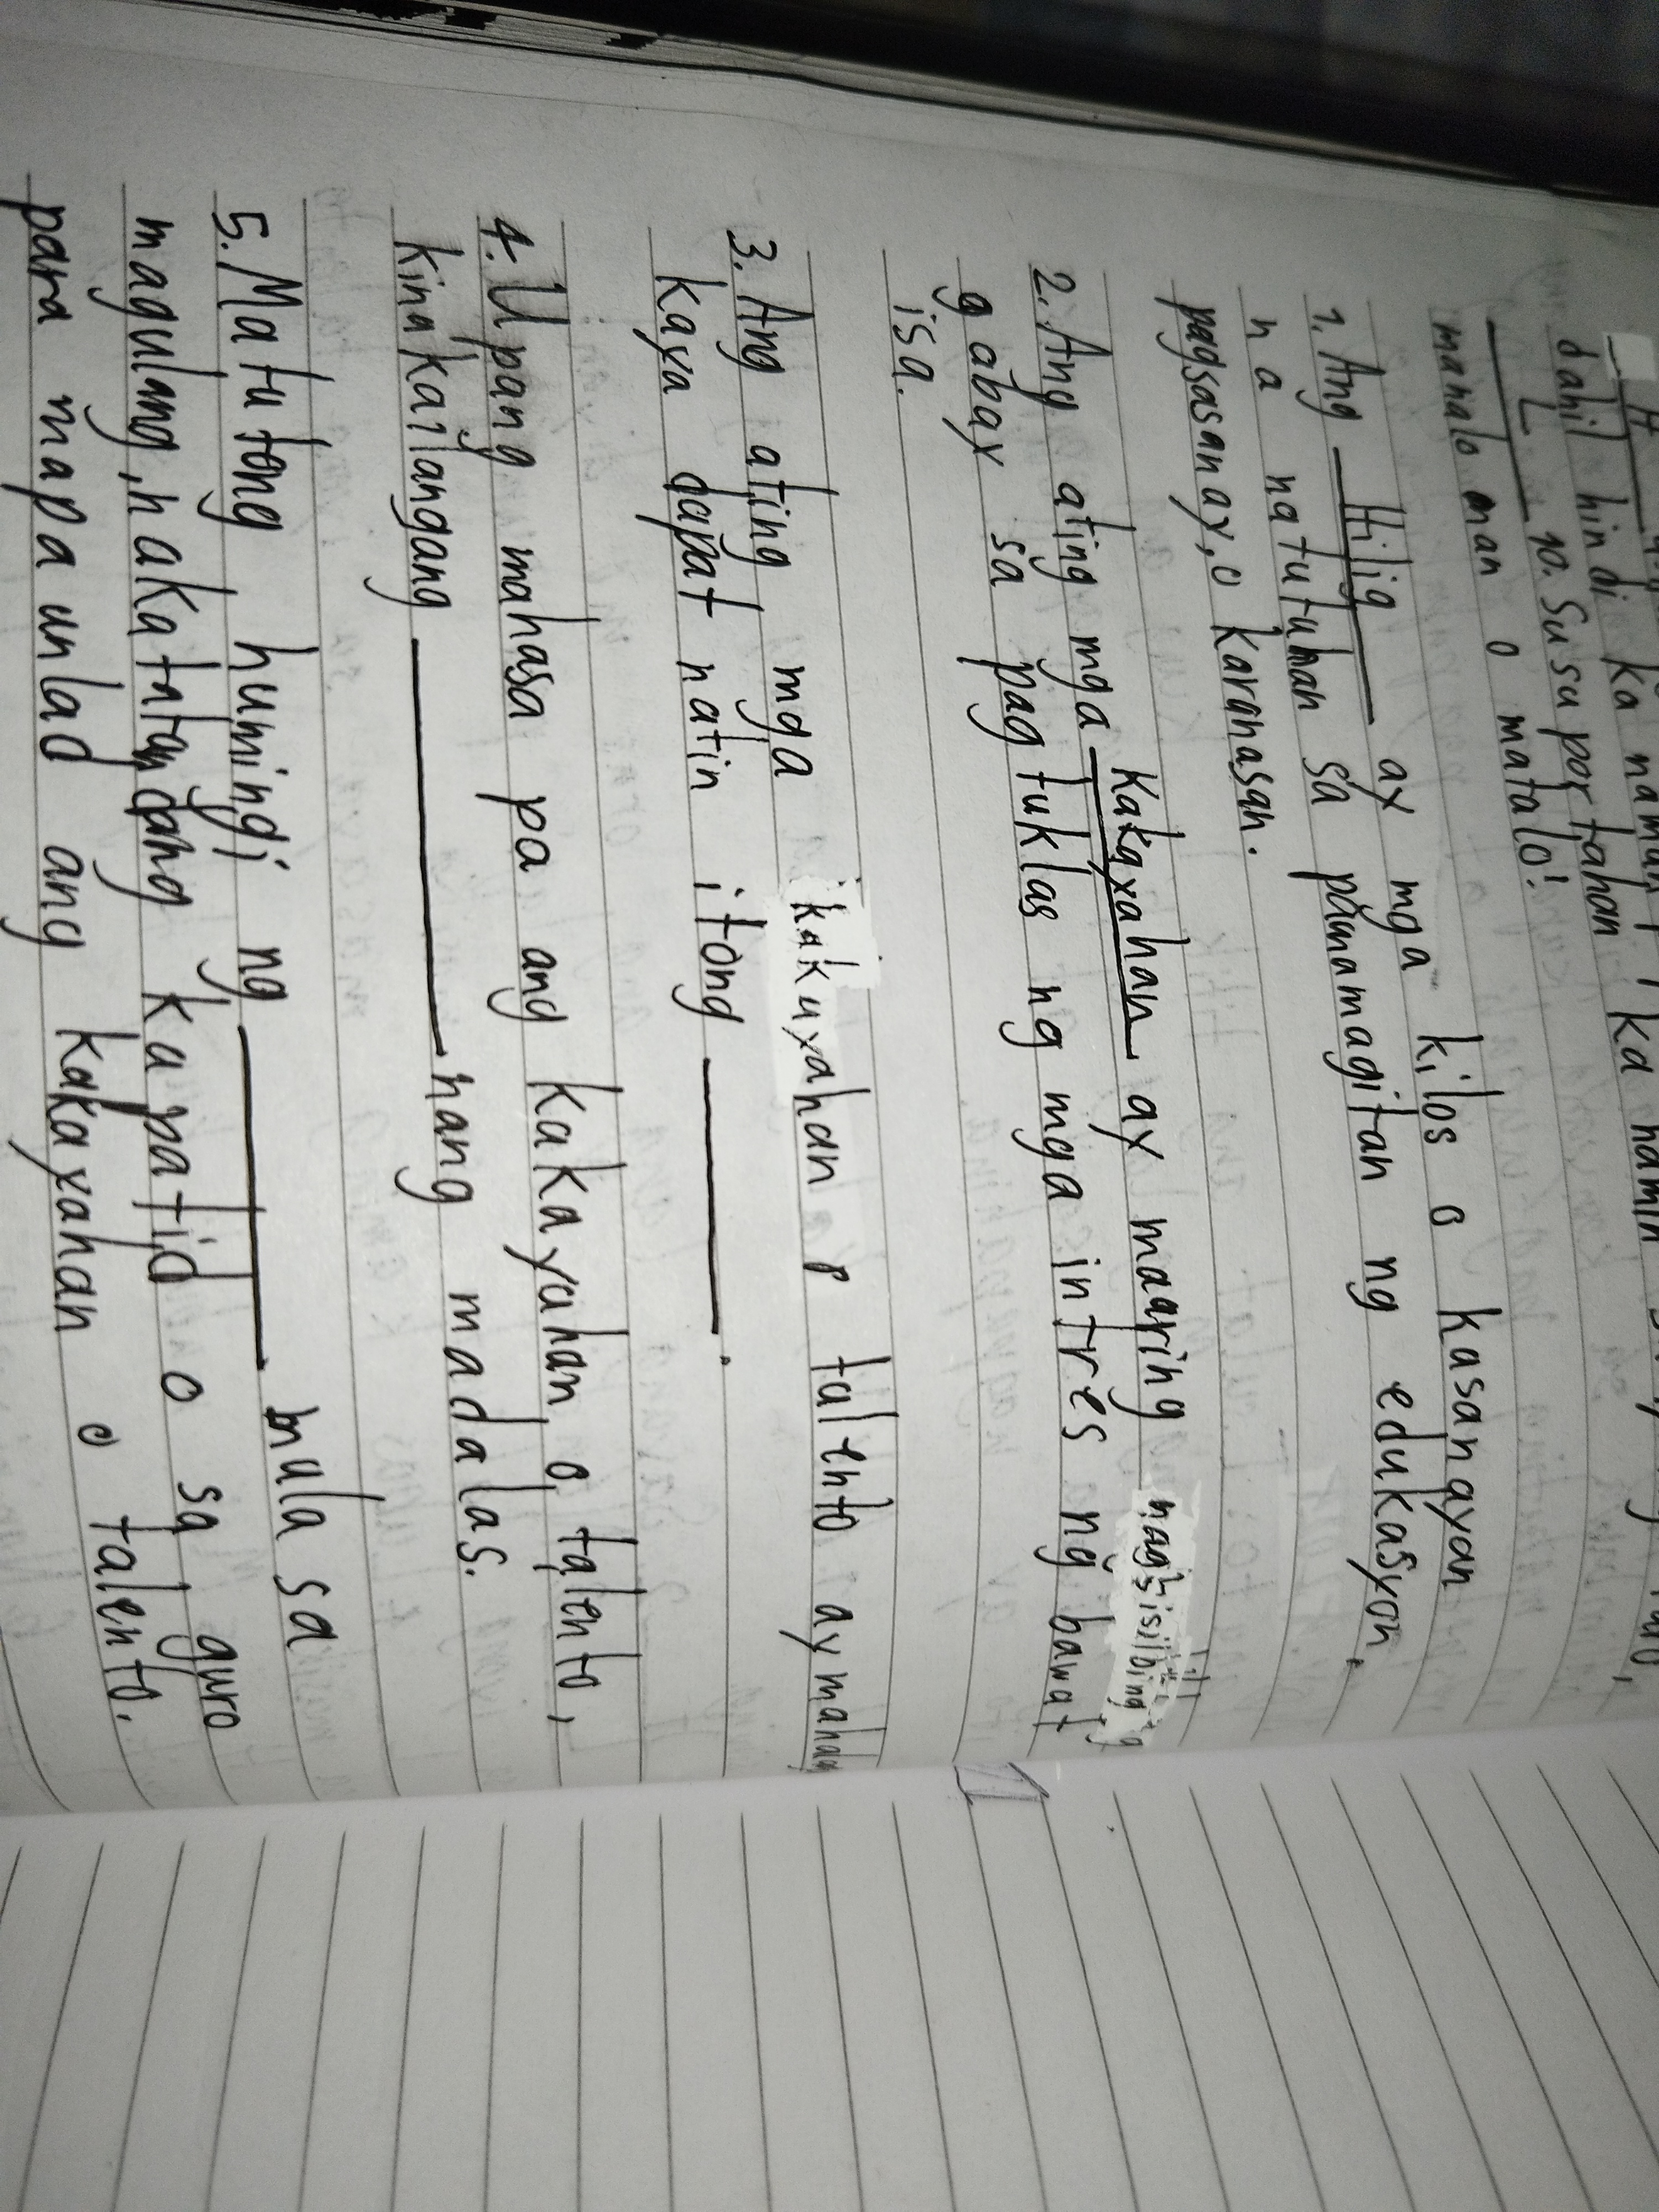 dahil hindi ka naman
L 10. Susuportahan ka namin
manalo man o matalo!
1. Ang Hilig ay mga kilos o kasanayan
na natutuhan sa pamamagitan ng edukasyon,
pagsasanay, o karanasan.
2. Ang ating mga Kakayahan ay maaring nagsisilbing
gabay sa pagtuklas ng mga intres ng bawat
isa.
3. Ang ating mga kakayahan o talento ay
kaya dapat natin itong ________.
4. Upang mahasa pa ang kakayahan o talento,
kinakailangang ________ nang madalas.
5. Matutong humingi ng ________ mula sa
magulang, nakatatandang kapatid o sa guro
para mapaunlad ang kakayahan o talento.